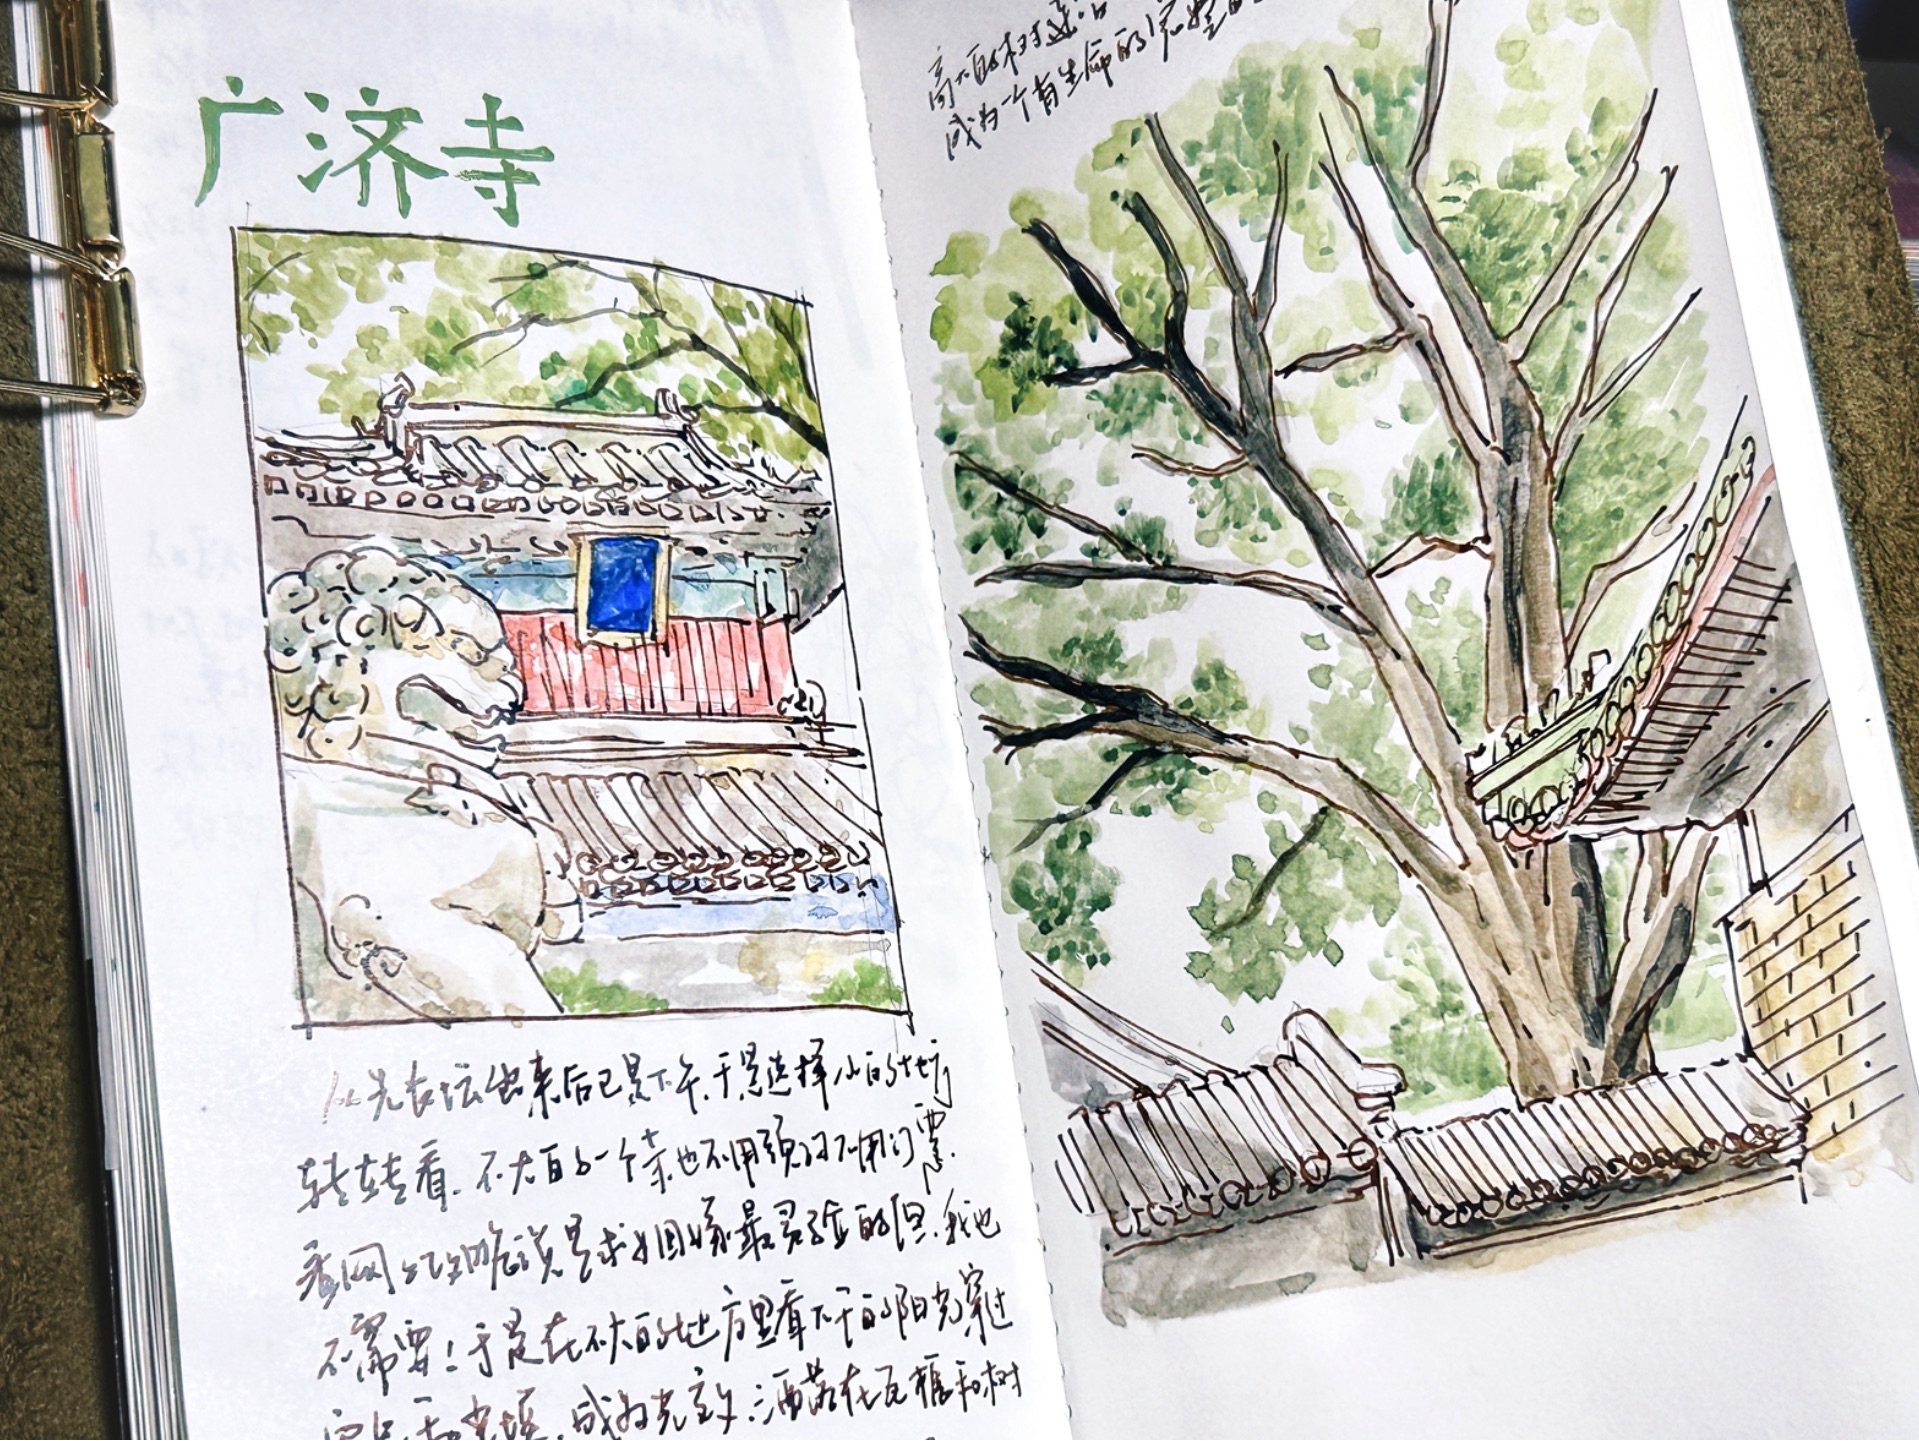 广济寺
从先农坛出来后已是下午，于是选择小的地方
转转看，不大的一个寺也不用预约不用门票。
看网上攻略说是求姻缘最灵验的，但我也
不需要！于是在不大的地方里看下午的阳光穿过
成为光亥，洒落在瓦檐和树
高大的树
成为一个有生命的完整的